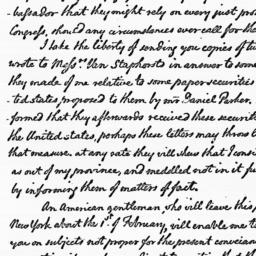 -bassador that they might rely on every just pro
Congress, should any circumstances ever call for the
I take the liberty of sending you copies of tw
wrote to Mess.rs Van Staphorsts in answer to some
they made of me relative to some paper securities
-ted states, proposed to them by mr Daniel Parker.
-formed that they afterwards received these securit
the United states, perhaps these letters may throw l
that measure. at any rate they will shew that I consi
as out of my province, and meddled not in it fu
by informing them of matters of fact.
An American gentleman, who will leave this p
New York about the 1st of February, will enable me t
you on subjects not proper for the present conveian